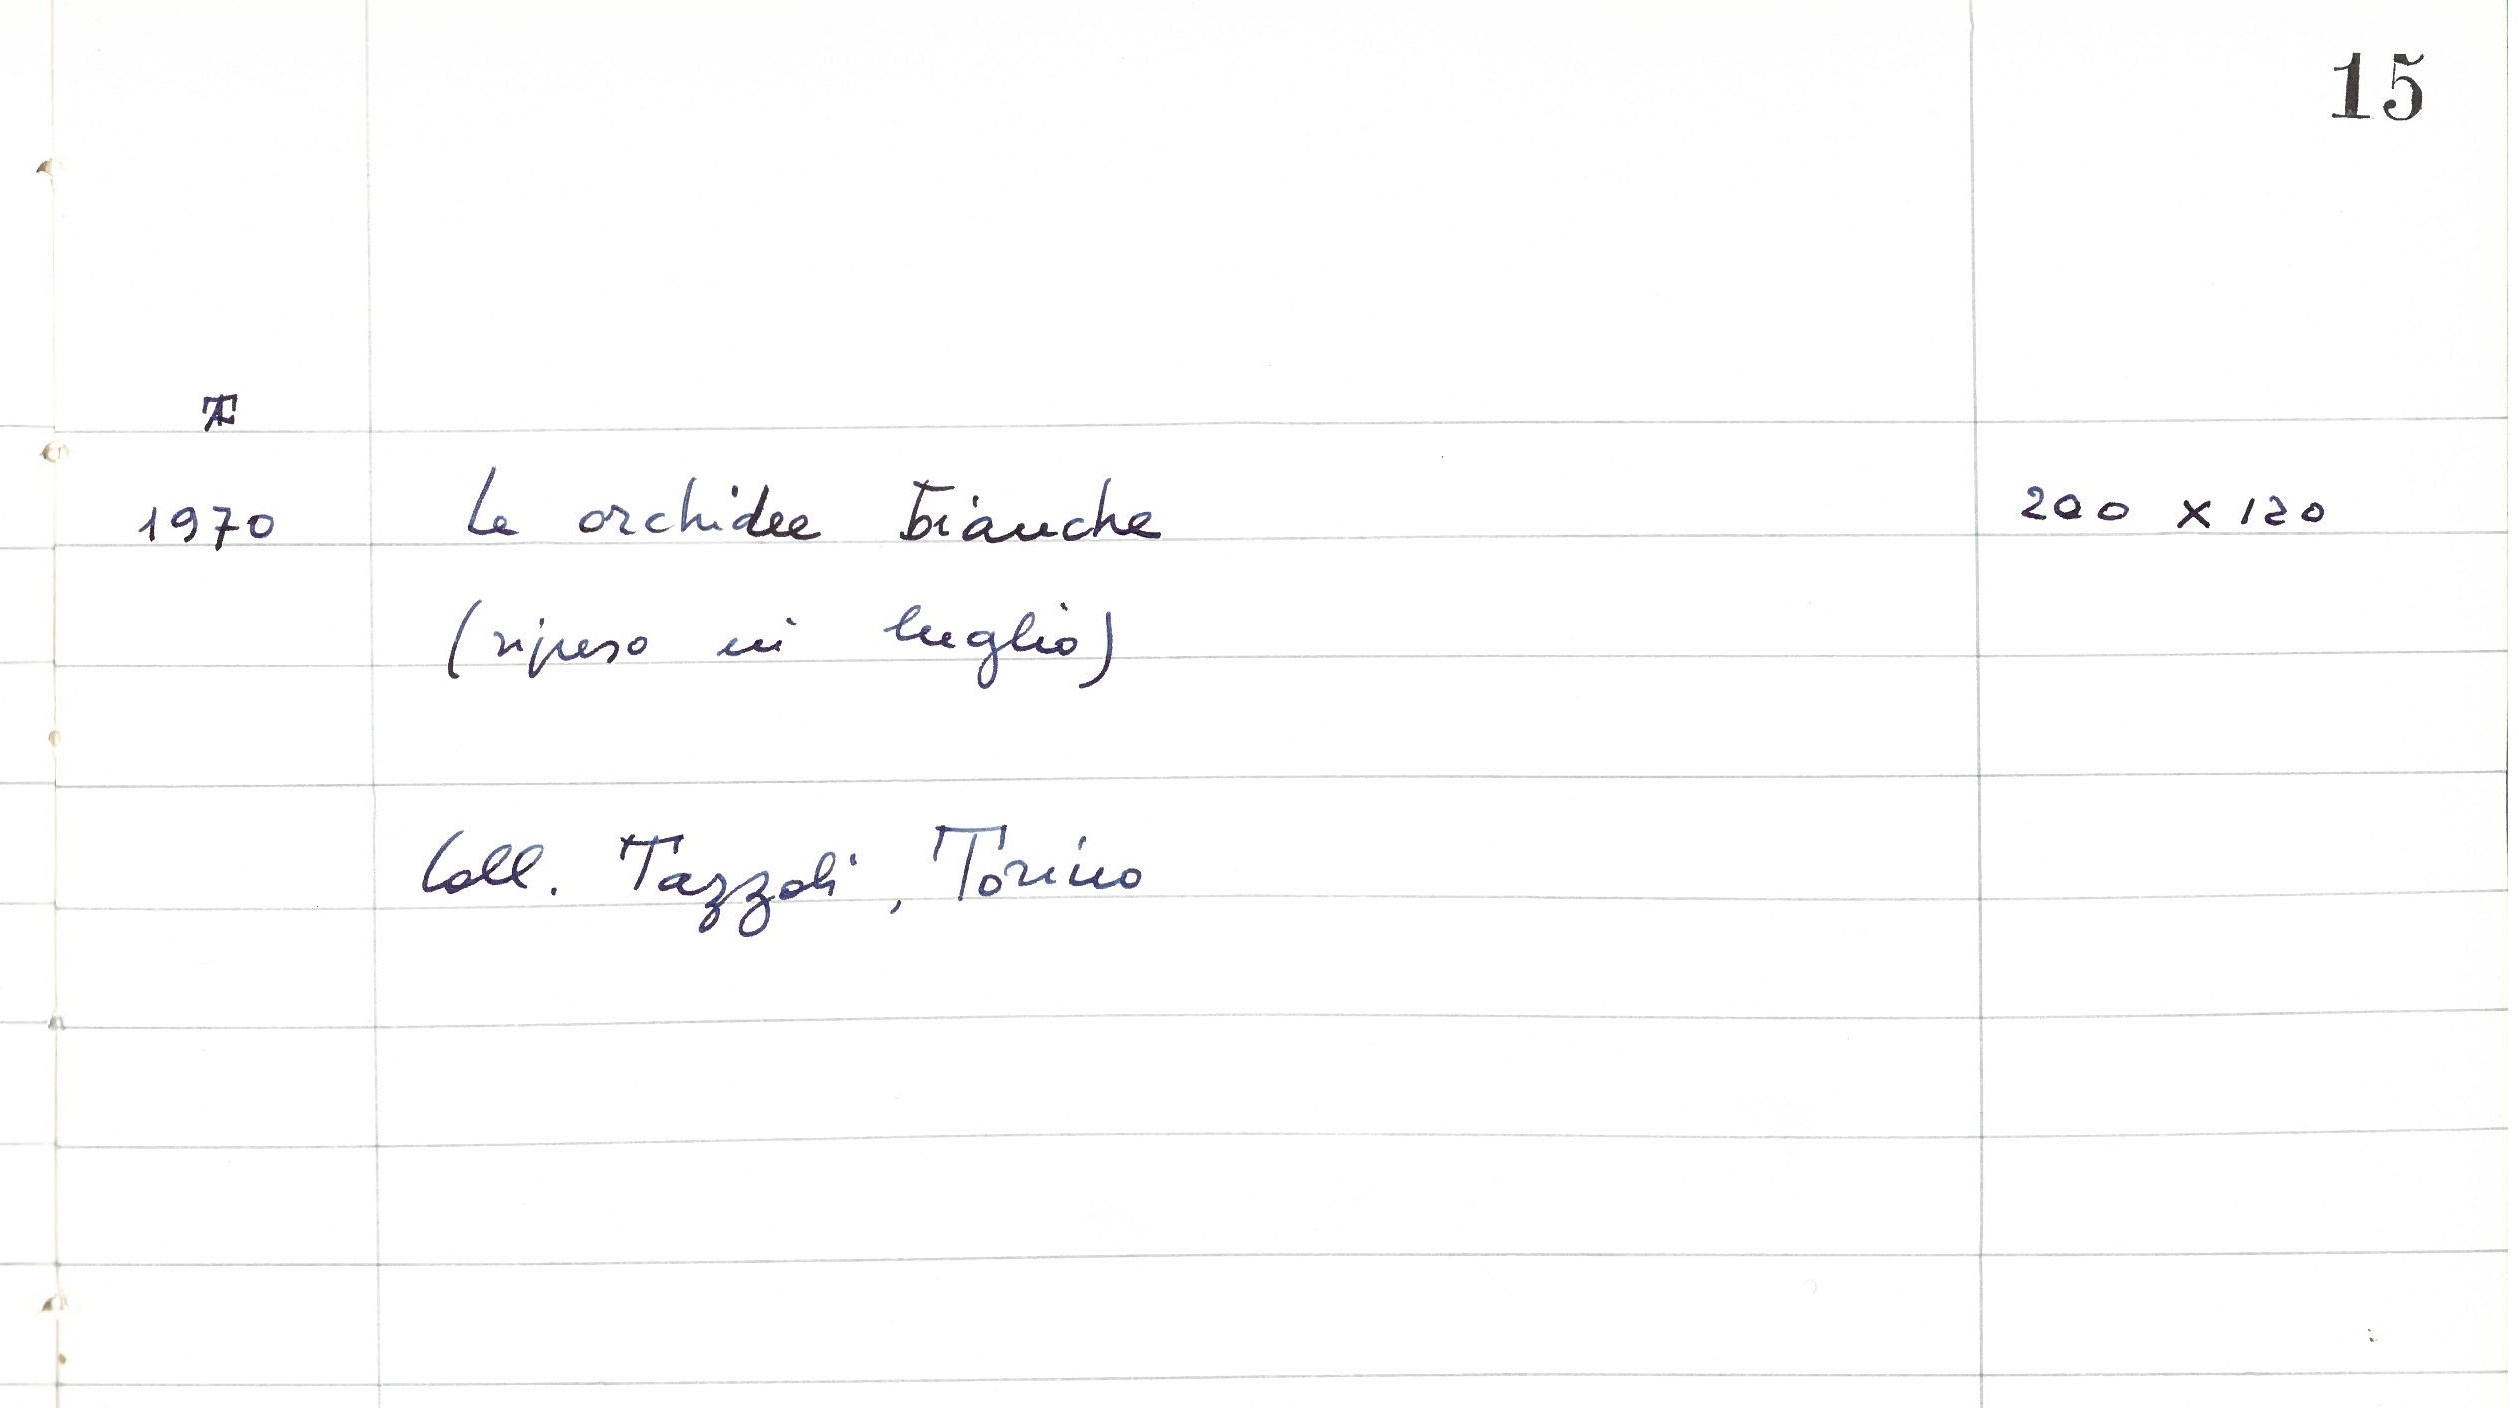 15
1970 Le orchidee bianche 200 x 120
(ripreso in luglio)
Coll. Tazzoli, Torino